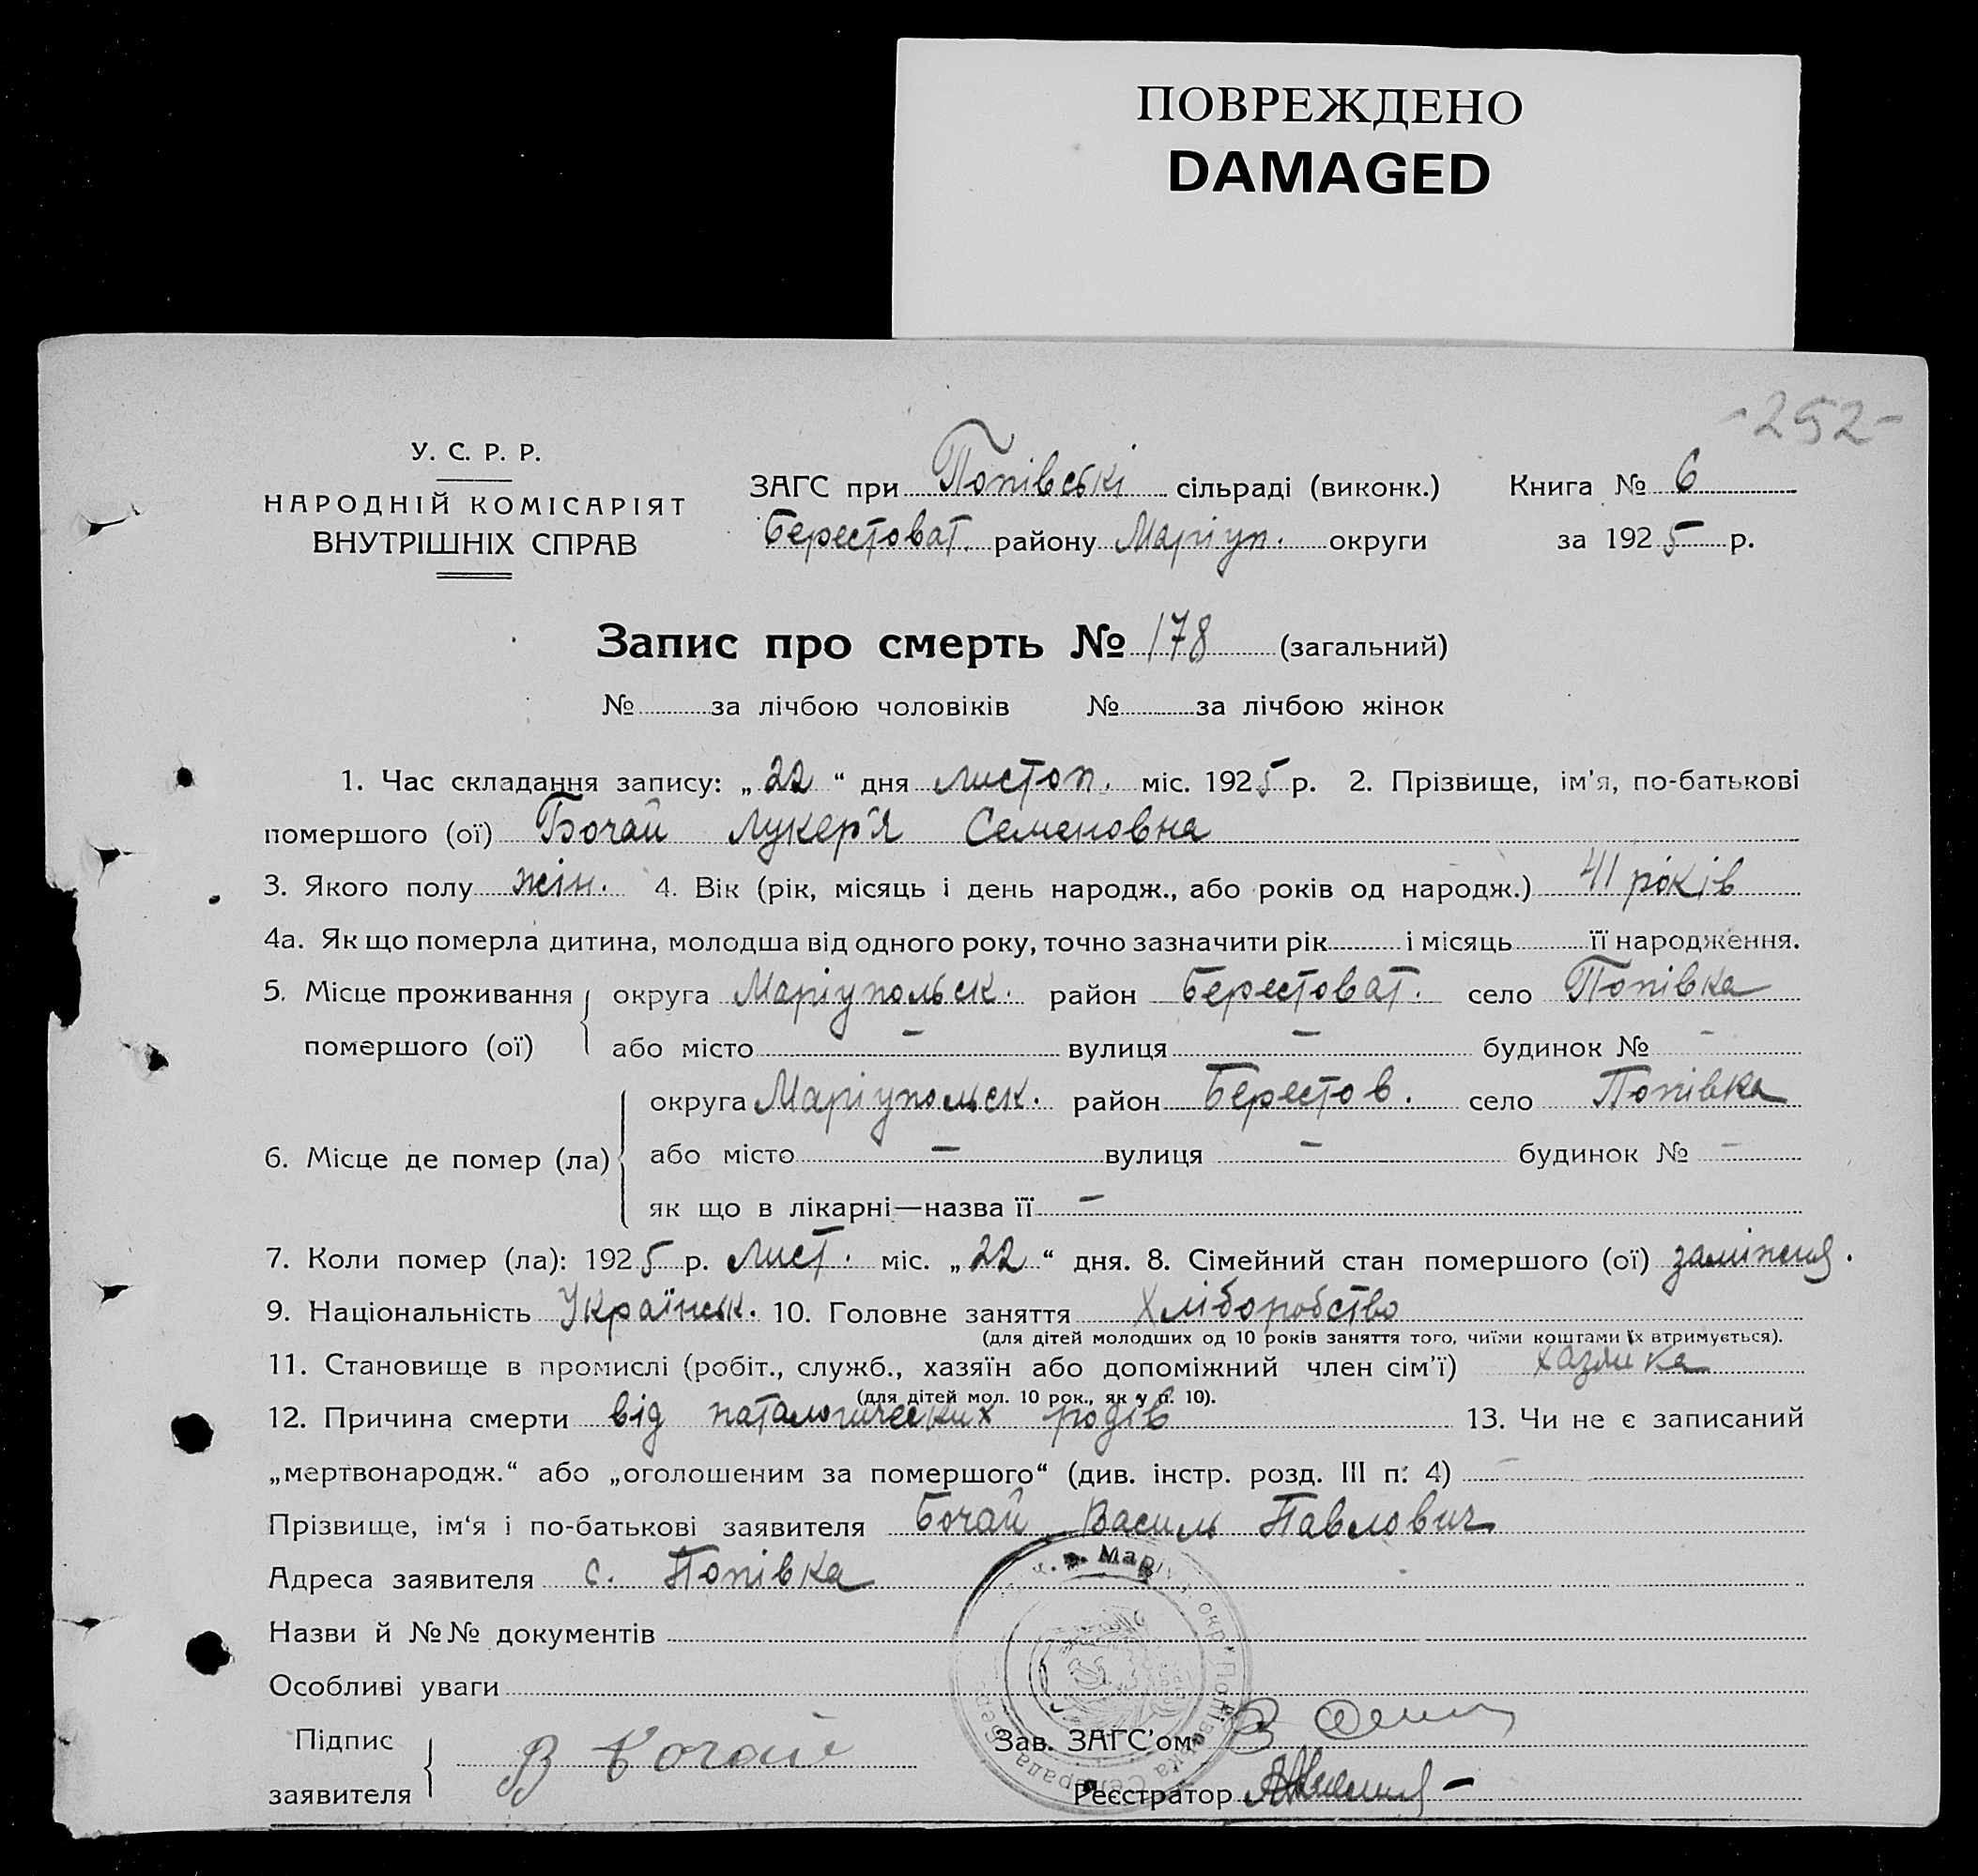 ПОВРЕЖДЕНО
DAMAGED
-252-
У. С. Р. Р.
НАРОДНІЙ КОМІСАРІЯТ
ВНУТРІШНІХ СПРАВ
ЗАГС при Попівські сільраді (виконк.) Книга № 6
Берестоват. району Маріуп. округи за 1925 р.
Запис про смерть № 178 (загальний)
№ за лічбою чоловіків № за лічбою жінок
1. Час складання запису: „22“ дня листоп. міс. 1925 р. 2. Прізвище, ім'я, по-батькові
помершого (ої) Бочай Лукер'я Семеновна
3. Якого полу жін. 4. Вік (рік, місяць і день народж., або років од народж.) 41 років
4а. Як що померла дитина, молодша від одного року, точно зазначити рік і місяць її народження.
5. Місце проживання округа Маріупольск. район Берестоват. село Попівка
помершого (ої) або місто – вулиця – будинок № –
округа Маріупольск. район Берестов. село Попівка
6. Місце де помер (ла) або місто – вулиця – будинок № –
як що в лікарні—назва її –
7. Коли помер (ла): 1925 р. лист. міс. „22“ дня. 8. Сімейний стан помершого (ої) заміжня.
9. Національність Українськ. 10. Головне заняття Хліборобство
(для дітей молодших од 10 років заняття того, чиїми коштами їх втримується).
11. Становище в промислі (робіт., служб., хазяїн або допоміжний член сім'ї) хазяйка
(для дітей мол. 10 рок., як у п. 10).
12. Причина смерти від паталогических родів 13. Чи не є записаний
„мертвонародж.“ або „оголошеним за помершого“ (див. інстр. розд. III п. 4) –
Прізвище, ім'я і по-батькові заявителя Бочай Василь Павлович
Адреса заявителя с. Попівка
Назви й №№ документів
Особливі уваги
Підпис
заявителя В Бочай
Зав. ЗАГС'ом
Реєстратор